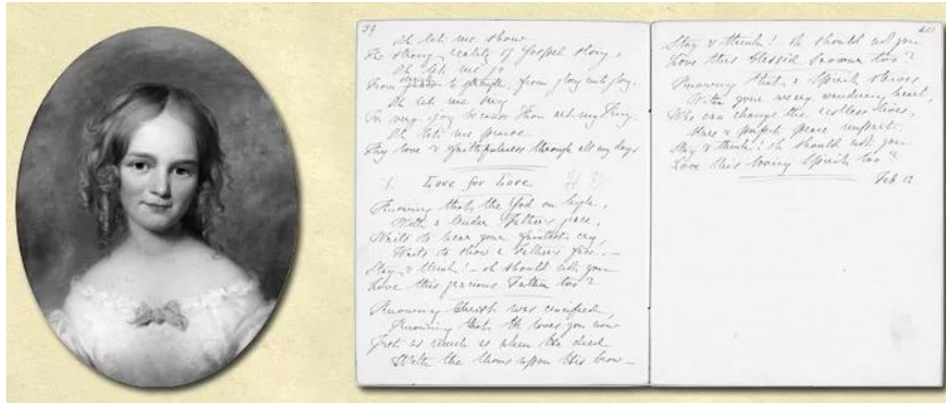 39
Oh let me show
The strong reality of Gospel story,
Oh let me go
From to strength, from glory unto glory.
Oh let me sing
For very joy because Thou art my King.
Oh let me praise
Thy love & faithfulness through all my days
1. Love for Love
Knowing that the God on high,
With a tender Father's grace,
Waits to hear your faintest cry,
Waits to show a Father's face, —
Stay & think! – oh should not you
Love this gracious Father too?
Knowing Christ was crucified,
Knowing that He loves you now
Just as much as when He died
With the thorns upon His brow —
Stay & think! oh should not you
Love this blessed Saviour too?
Knowing that a Spirit strives
With your weary wandering heart,
Who can change the restless lives,
Pure & perfect peace impart.
Stay & think! oh should not you
Love this loving Spirit too?
Feb 12